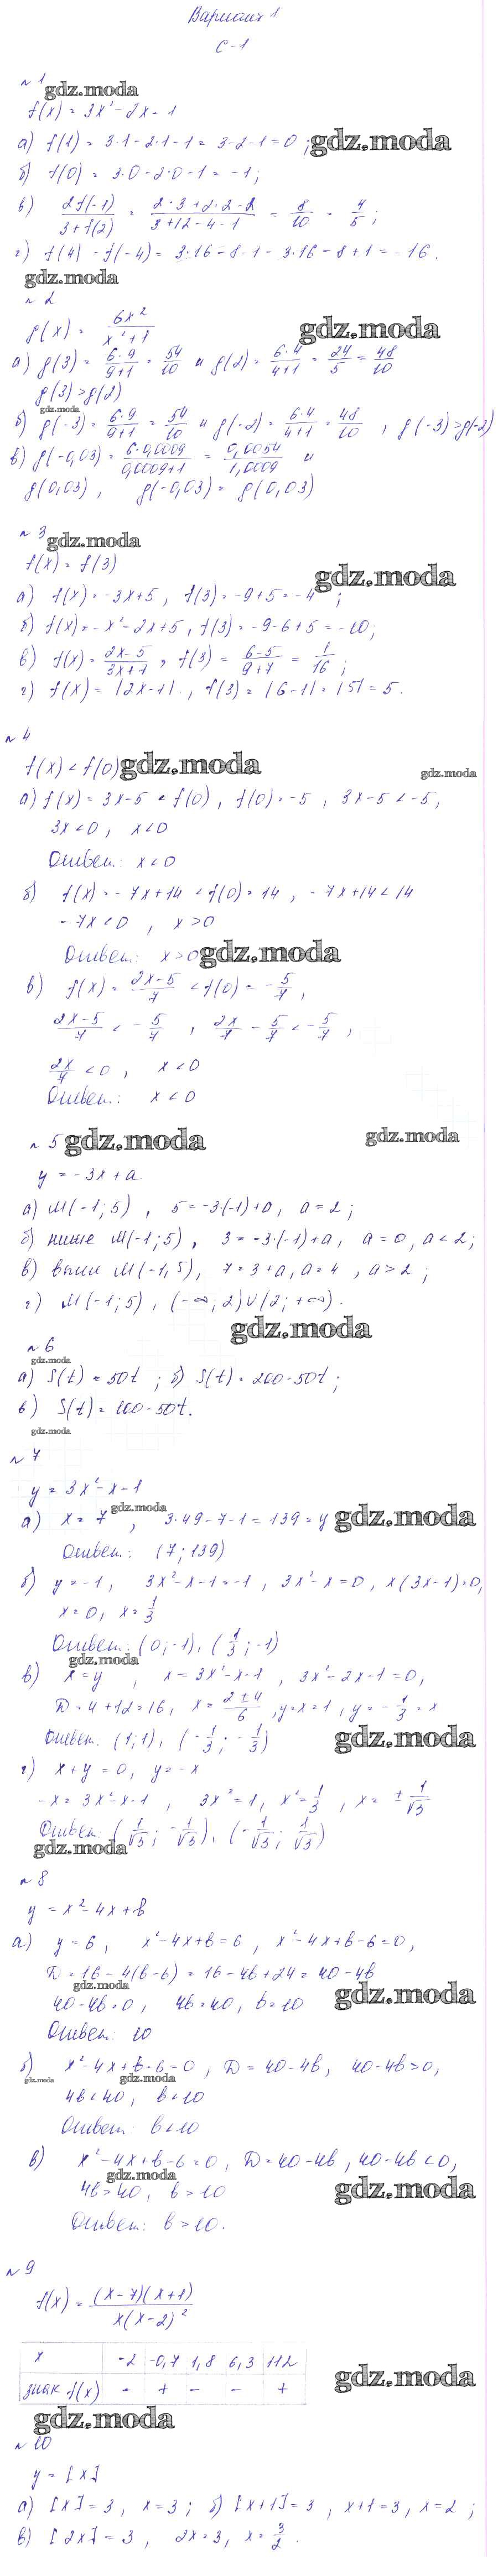 Вариант 1
С-1
№ 1
gdz.moda
f(x) = 3x² - 2x - 1
а) f(1) = 3·1 - 2·1 - 1 = 3 - 2 - 1 = 0 ; gdz.moda
б) f(0) = 3·0 - 2·0 - 1 = -1 ;
в) 2f(-1)/(3+f(2)) = (2·3+2·2-2)/(3+12-4-1) = 8/10 = 4/5 ;
г) f(4) - f(-4) = 3·16 - 8 - 1 - 3·16 - 8 + 1 = -16.
gdz.moda
№ 2
f(x) = 6x²/(x²+1) gdz.moda
а) f(3) = 6·9/(9+1) = 54/10 и f(2) = 6·4/(4+1) = 24/5 = 48/10
f(3) > f(2)
gdz.moda
б) f(-3) = 6·9/(9+1) = 54/10 и f(-2) = 6·4/(4+1) = 48/10 , f(-3) > f(-2)
в) f(-0,03) = 6·0,0009/(0,0009+1) = 0,0054/1,0009 и
f(0,03) , f(-0,03) = f(0,03)
№ 3 gdz.moda
f(x) = f(3)
gdz.moda
а) f(x) = -3x+5 , f(3) = -9+5 = -4 ;
б) f(x) = -x²-2x+5 , f(3) = -9-6+5 = -10;
в) f(x) = (2x-5)/(3x+7) , f(3) = (6-5)/(9+7) = 1/16 ;
г) f(x) = |2x-1| , f(3) = |6-1| = |5| = 5.
№ 4
f(x) < f(0) gdz.moda gdz.moda
а) f(x) = 3x-5 < f(0) , f(0) = -5 , 3x-5 < -5,
3x<0 , x<0
Ответ: x<0
б) f(x) = -7x+14 < f(0) = 14 , -7x+14 < 14
-7x<0 , x>0
Ответ: x>0 gdz.moda
в) f(x) = (2x-5)/7 < f(0) = -5/7 ,
(2x-5)/7 < -5/7 , 2x/7 - 5/7 < -5/7 ,
2x/7 < 0 , x<0
Ответ: x<0
№ 5 gdz.moda gdz.moda
y = -3x + a
а) M(-1; 5) , 5 = -3·(-1)+a, a = 2 ;
б) ниже M(-1; 5) , 3 = -3·(-1)+a, a = 0, a < 2;
в) выше M(-1, 5), 7 = 3+a, a = 4 , a > 2 ;
г) M(-1; 5) , (-∞; 2)∪(2; +∞).
gdz.moda
№ 6
gdz.moda
а) S(t) = 50t ; б) S(t) = 200-50t ;
в) S(t) = 100-50t.
gdz.moda
№ 7
y = 3x²-x-1
gdz.moda
а) x = 7 , 3·49-7-1 = 139 = y gdz.moda
Ответ: (7; 139)
б) y = -1 , 3x²-x-1 = -1 , 3x²-x = 0 , x(3x-1) = 0,
x = 0, x = 1/3
Ответ: (0; -1), (1/3; -1)
gdz.moda
в) x = y , x = 3x²-x-1 , 3x²-2x-1 = 0,
D = 4+12 = 16, x = (2±4)/6 , y = x = 1 , y = -1/3 = x
Ответ. (1; 1), (-1/3; -1/3) gdz.moda
г) x + y = 0 , y = -x
-x = 3x²-x-1 , 3x² = 1, x² = 1/3 , x = ±1/√3
Ответ: (1/√3; -1/√3), (-1/√3; 1/√3)
gdz.moda
№ 8
y = x²-4x+b
а) y = 6 , x²-4x+b = 6 , x²-4x+b-6 = 0,
D = 16-4(b-6) = 16-4b+24 = 40-4b
gdz.moda gdz.moda
40-4b = 0 , 4b = 40, b = 10
Ответ: 10
б) x²-4x+b-6 = 0 , D = 40-4b, 40-4b>0,
gdz.moda gdz.moda
4b<40, b<10
Ответ: b<10
в) x²-4x+b-6 = 0 , D = 40-4b , 40-4b<0,
gdz.moda gdz.moda
4b>40, b>10
Ответ: b>10.
№ 9
f(x) = (x-7)(x+1)/(x(x-2)²)
x -2 -0,7 1,8 6,3 112 gdz.moda
знак f(x) - + - - +
gdz.moda
№ 10
y = [x]
а) [x] = 3, x = 3 ; б) [x+1] = 3 , x+1 = 3, x = 2 ;
в) [2x] = 3 , 2x = 3, x = 3/2 .